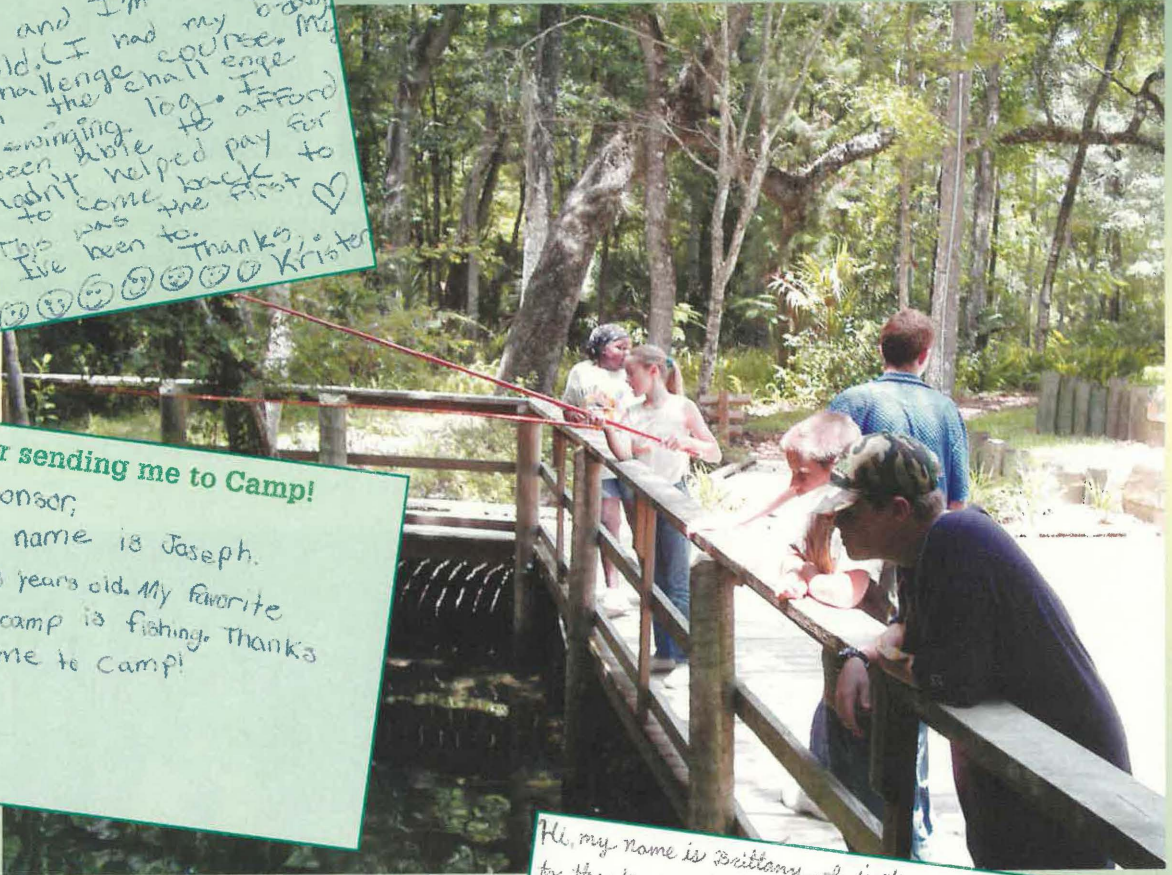 and I'm
I had my b-day
challenge course. My
the challenge
swinging log. I
been able to afford
hadn't helped pay for
to come back to
This was the first
I've been to.
Thanks, Kristen
r sending me to Camp!
onsor,
name is Joseph.
years old. My favorite
camp is fishing. Thanks
me to Camp!
Hi, my name is Brittany
to